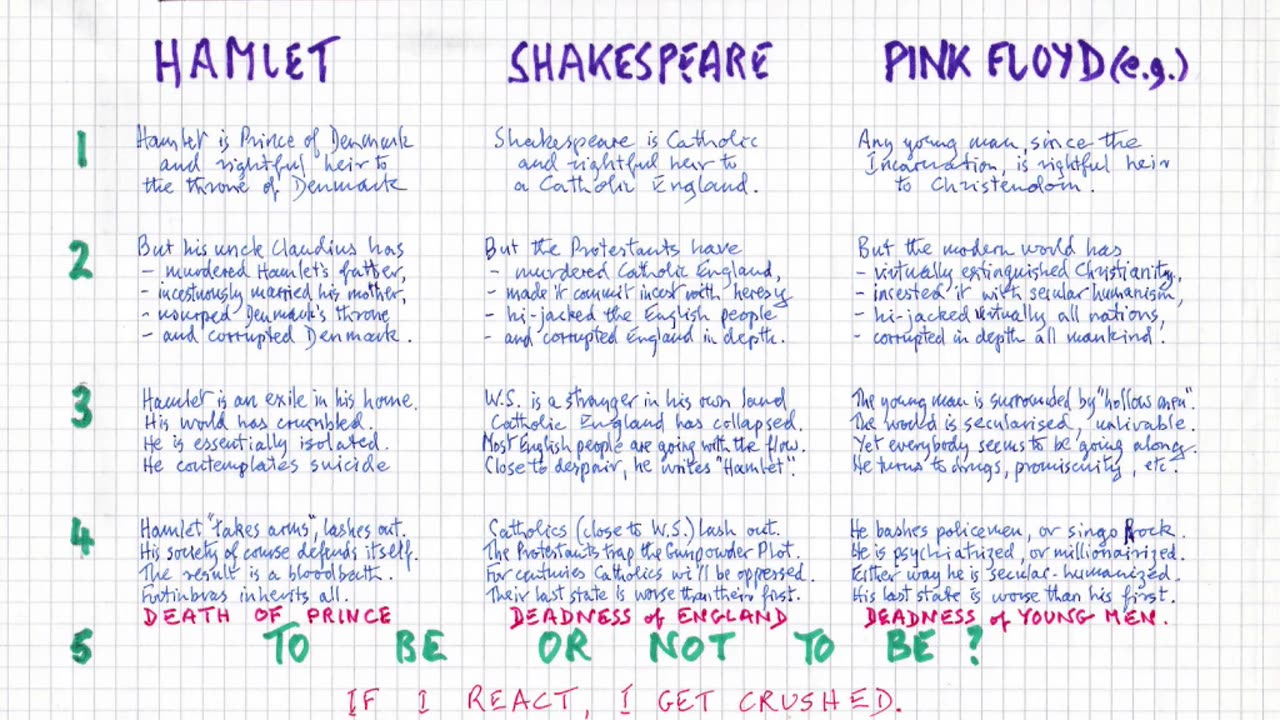 HAMLET
SHAKESPEARE
PINK FLOYD (e.g.)
1
Hamlet is Prince of Denmark
and rightful heir to
the throne of Denmark
Shakespeare is Catholic
and rightful heir to
a Catholic England.
Any young man, since the
Incarnation, is rightful heir
to Christendom.
2
But his uncle Claudius has
- murdered Hamlet's father,
- incestuously married his mother,
- usurped Denmark's throne
- and corrupted Denmark.
But the Protestants have
- murdered Catholic England,
- made it commit incest with heresy
- hi-jacked the English people
- and corrupted England in depth.
But the modern world has
- virtually extinguished Christianity,
- incested it with secular humanism,
- hi-jacked virtually all nations,
- corrupted in depth all mankind.
3
Hamlet is an exile in his home.
His world has crumbled.
He is essentially isolated.
He contemplates suicide
W.S. is a stranger in his own land
Catholic England has collapsed.
Most English people are going with the flow.
Close to despair, he writes "Hamlet".
The young man is surrounded by "hollow men".
The world is secularised, unlivable.
Yet everybody seems to be going along.
He turns to drugs, promiscuity, etc.
4
Hamlet "takes arms", lashes out.
His society of course defends itself.
The result is a bloodbath.
Fortinbras inherits all.
DEATH OF PRINCE
Catholics (close to W.S.) lash out.
The Protestants trap the Gunpowder Plot.
For centuries Catholics will be oppressed.
Their last state is worse than their first.
DEADNESS of ENGLAND
He bashes policemen, or sings Rock.
He is psychiatrized, or millionairized.
Either way he is secular-humanized.
His last state is worse than his first.
DEADNESS of YOUNG MEN.
5
TO BE OR NOT TO BE?
IF I REACT, I GET CRUSHED.